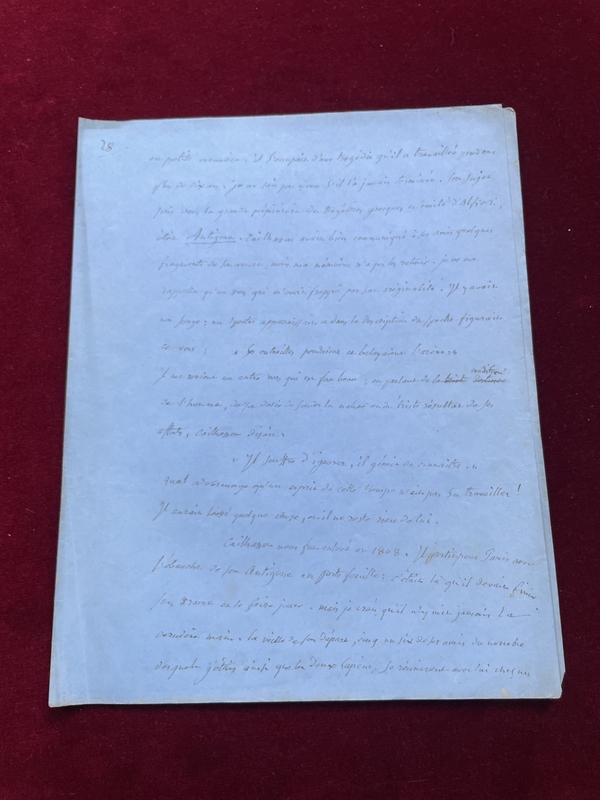 28
il s'occupait d'une tragédie qu'il a travaillée pendant
plus de dix ans. je ne sais pas même s'il l'a jamais terminée. Son sujet
pris dans la grande pépinière des tragédies grecques et imité d'Alfieri,
était Antigone. Cailhasson avait bien communiqué à ses amis quelques
fragments de son œuvre, mais ma mémoire n'a pu les retenir. je ne me
rappelle qu'un vers qui m'avait frappé par son originalité. Il y avait
un songe; un spectre apparaissait et dans la description du spectre figurait
ce vers: « Ses entrailles pendaient
Il me revient un autre vers qui est fort beau; en parlant de la condition
de l'homme, de ses désirs de savoir la
efforts, Cailhasson disait:
« Il souffre d'ignorer, il gémit de connaître. »
quel dommage qu'un esprit de cette trempe n'ait pas su travailler!
Il aurait laissé quelque chose, et il ne reste rien de lui.
Cailhasson nous fut enlevé en 1808. Il partit pour Paris avec
l'ébauche de son Antigone en porte feuille; c'était là qu'il devait finir
son drame et le faire jouer. mais je crois qu'il n'y mit jamais la
dernière main. la veille de son départ, cinq ou six de ses amis du nombre
desquels j'étais ainsi que les deux se réunirent avec lui chez un